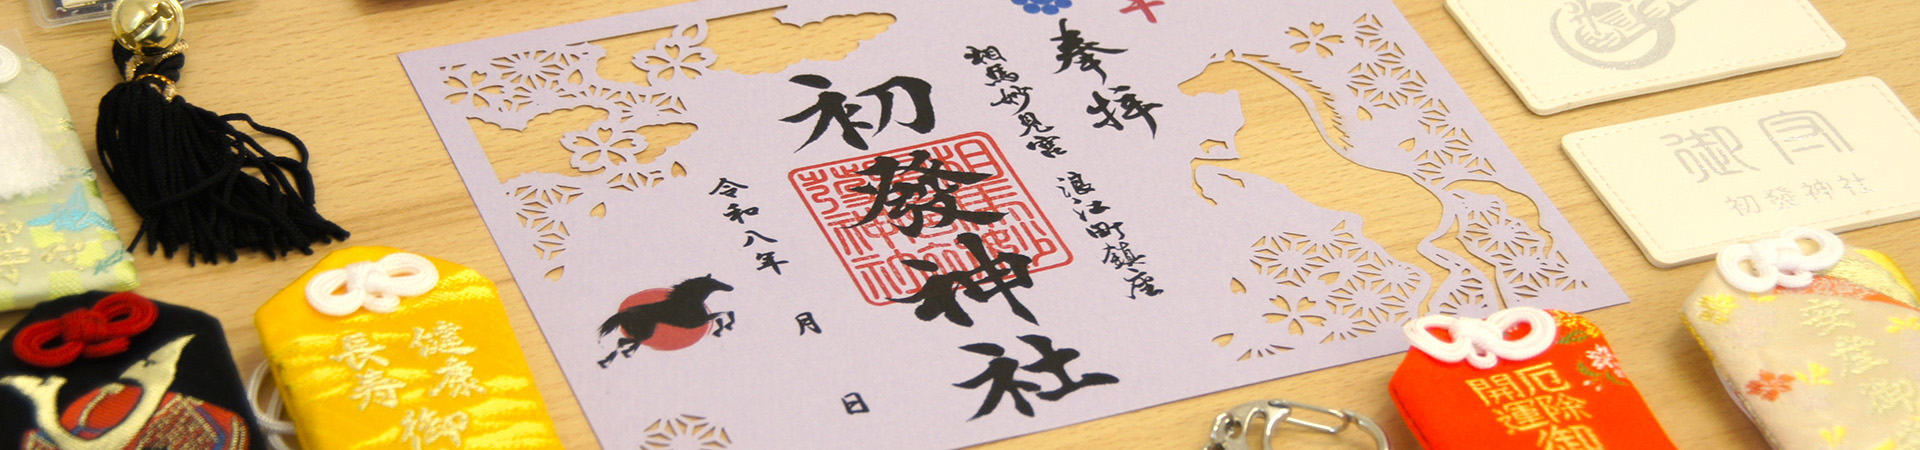 奉拝
相馬妙見宮 浪江町鎮座
初發神社
令和八年 月 日
健康
長寿
御
厄除
開運
御
安産
御
御守
初發神社